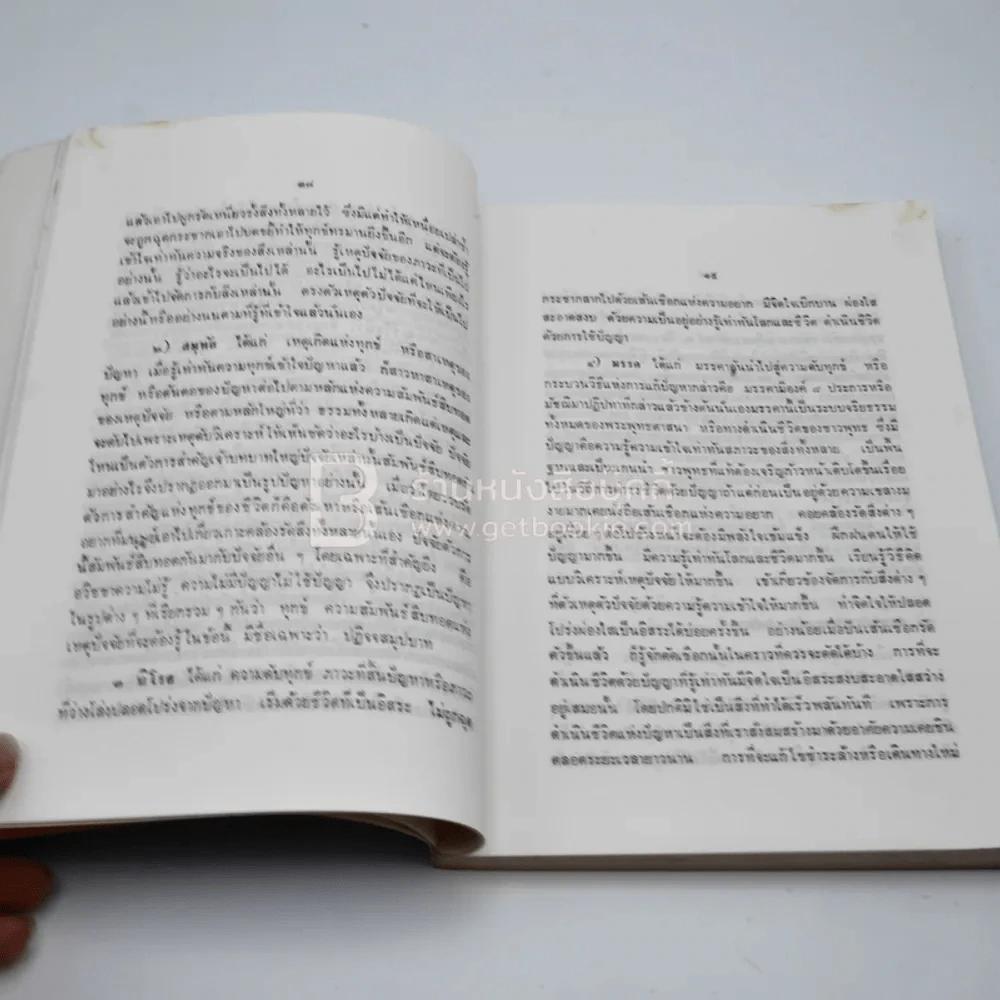 ๑๔
แล้วเอาไปผูกรัดเหนี่ยวรั้งสิ่งทั้งหลายไว้ ซึ่งมีแต่ทำให้เหนื่อยเปล่าถ้า
จะถูกฉุดกระชากเอาไปบดขยี้ทำให้ทุกข์ทรมานยิ่งขึ้นอีก แต่จะต้องรู้
เข้าใจเท่าทันความจริงของสิ่งเหล่านั้น รู้เหตุปัจจัยของภาวะที่เป็นไป
อย่างนั้น รู้ว่าอะไรจะเป็นไปได้ อะไรเป็นไปไม่ได้แค่ไหนเพียงไร
แล้วเข้าไปจัดการกับสิ่งเหล่านั้น ตรงตัวเหตุตัวปัจจัยที่จะให้เป็นไป
อย่างนี้หรืออย่างนั้นตามที่รู้ที่เข้าใจแล้วนั้นเอง
๒) สมุทัย ได้แก่ เหตุเกิดแห่งทุกข์ หรือสาเหตุของ
ปัญหา เมื่อรู้เท่าทันความทุกข์เข้าใจปัญหาแล้ว ก็สาวหาสาเหตุของ
ทุกข์ หรือต้นตอของปัญหาต่อไปตามหลักแห่งความสัมพันธ์สืบทอด
ของเหตุปัจจัย หรือตามหลักใหญ่ที่ว่า ธรรมทั้งหลายเกิดแต่เหตุและ
จะดับไปเพราะเหตุดับวิเคราะห์ให้เห็นชัดว่าอะไรบ้างเป็นปัจจัย ปัจจัย
ไหนเป็นตัวการสำคัญเจ้าบทบาทใหญ่ปัจจัยเหล่านั้นสัมพันธ์สืบทอด
มาอย่างไร จึงปรากฏออกมาเป็นรูปปัญหาอย่างนั้น เมื่อ
ตัวการสำคัญแห่งทุกข์ของชีวิตก็คือ เส้นเชือกแห่ง
อยากที่มนุษย์เอาไปเกี่ยวเกาะคล้องรัดสิ่งทั้งหลายนั่นเอง
นี้สัมพันธ์สืบทอดกันมากับปัจจัยอื่น ๆ โดยเฉพาะที่สำคัญยิ่ง คือ
อวิชชาความไม่รู้ ความไม่มีปัญญาไม่ใช้ปัญญา จึงปรากฏเป็นปัญหา
ในรูปต่าง ๆ ที่เรียกรวม ๆ กันว่า ทุกข์ ความสัมพันธ์สืบทอดแห่ง
เหตุปัจจัยที่จะต้องรู้ในข้อนี้ มีชื่อเฉพาะว่า ปฏิจจสมุปบาท
๓ นิโรธ ได้แก่ ความดับทุกข์ ภาวะที่สิ้นปัญหาหรือภาวะ
ที่ว่างโล่งปลอดโปร่งจากปัญหา เริ่มด้วยชีวิตที่เป็นอิสระ ไม่ถูกฉุด
๑๕
กระชากลากไปด้วยเส้นเชือกแห่งความอยาก มีจิตใจเบิกบาน ผ่องใส
สะอาดสงบ ด้วยความเป็นอยู่อย่างรู้เท่าทันโลกและชีวิต ดำเนินชีวิต
ด้วยการใช้ปัญญา
๔) มรรค ได้แก่ มรรคาอันนำไปสู่ความดับทุกข์ หรือ
กระบวนวิธีแห่งการแก้ปัญหากล่าวคือ มรรคามีองค์ ๘ ประการหรือ
มัชฌิมาปฏิปทาที่กล่าวแล้วข้างต้นนั่นเองมรรคานี้เป็นระบบจริยธรรม
ทั้งหมดของพระพุทธศาสนา หรือทางดำเนินชีวิตของชาวพุทธ ซึ่งมี
ปัญญาคือความรู้ความเข้าใจเท่าทันสภาวะของสิ่งทั้งหลาย เป็นพื้น
ฐานและเป็นแกนนำ ชาวพุทธที่แท้ต้องเจริญก้าวหน้าเติบโตขึ้นเรื่อย
ด้วยปัญญาถ้าแต่ก่อนเป็นอยู่ด้วยความเขลางม
งายมากเคยนั่งถือเส้นเชือกแห่งความอยาก คอยคล้องรัดสิ่งต่าง ๆ
ต่อไปข้างหน้าจะต้องมีพลังใจเข้มแข็ง ฝึกฝนตนให้ใช้
ปัญญามากขึ้น มีความรู้เท่าทันโลกและชีวิตมากขึ้น เรียนรู้วิธีคิด
แบบวิเคราะห์เหตุปัจจัยให้มากขึ้น เข้าเกี่ยวข้องจัดการกับสิ่งต่าง ๆ
ที่ตัวเหตุตัวปัจจัยด้วยความรู้ความเข้าใจให้มากขึ้น ทำจิตใจให้ปลอด
โปร่งผ่องใสเป็นอิสระได้บ่อยครั้งขึ้น อย่างน้อยเมื่อปั่นเส้นเชือกรัด
ตัวขึ้นแล้ว ก็รู้จักตัดเชือกนั้นในคราวที่ควรจะตัดได้บ้าง การที่จะ
ดำเนินชีวิตด้วยปัญญาที่รู้เท่าทันมีจิตใจเป็นอิสระสงบสะอาดใสสว่าง
อยู่เสมอนั้น โดยปกติมิใช่เป็นสิ่งที่ทำได้เร็วพลันทันที เพราะการ
ดำเนินชีวิตแห่งปัญหาเป็นสิ่งที่เราสั่งสมสร้างมาด้วยอาศัยความเคยชิน
ตลอดระยะเวลายาวนาน การที่จะแก้ไขชำระล้างหรือเดินทางใหม่
ร้านหนังสือบุคกี้
www.getbookie.com